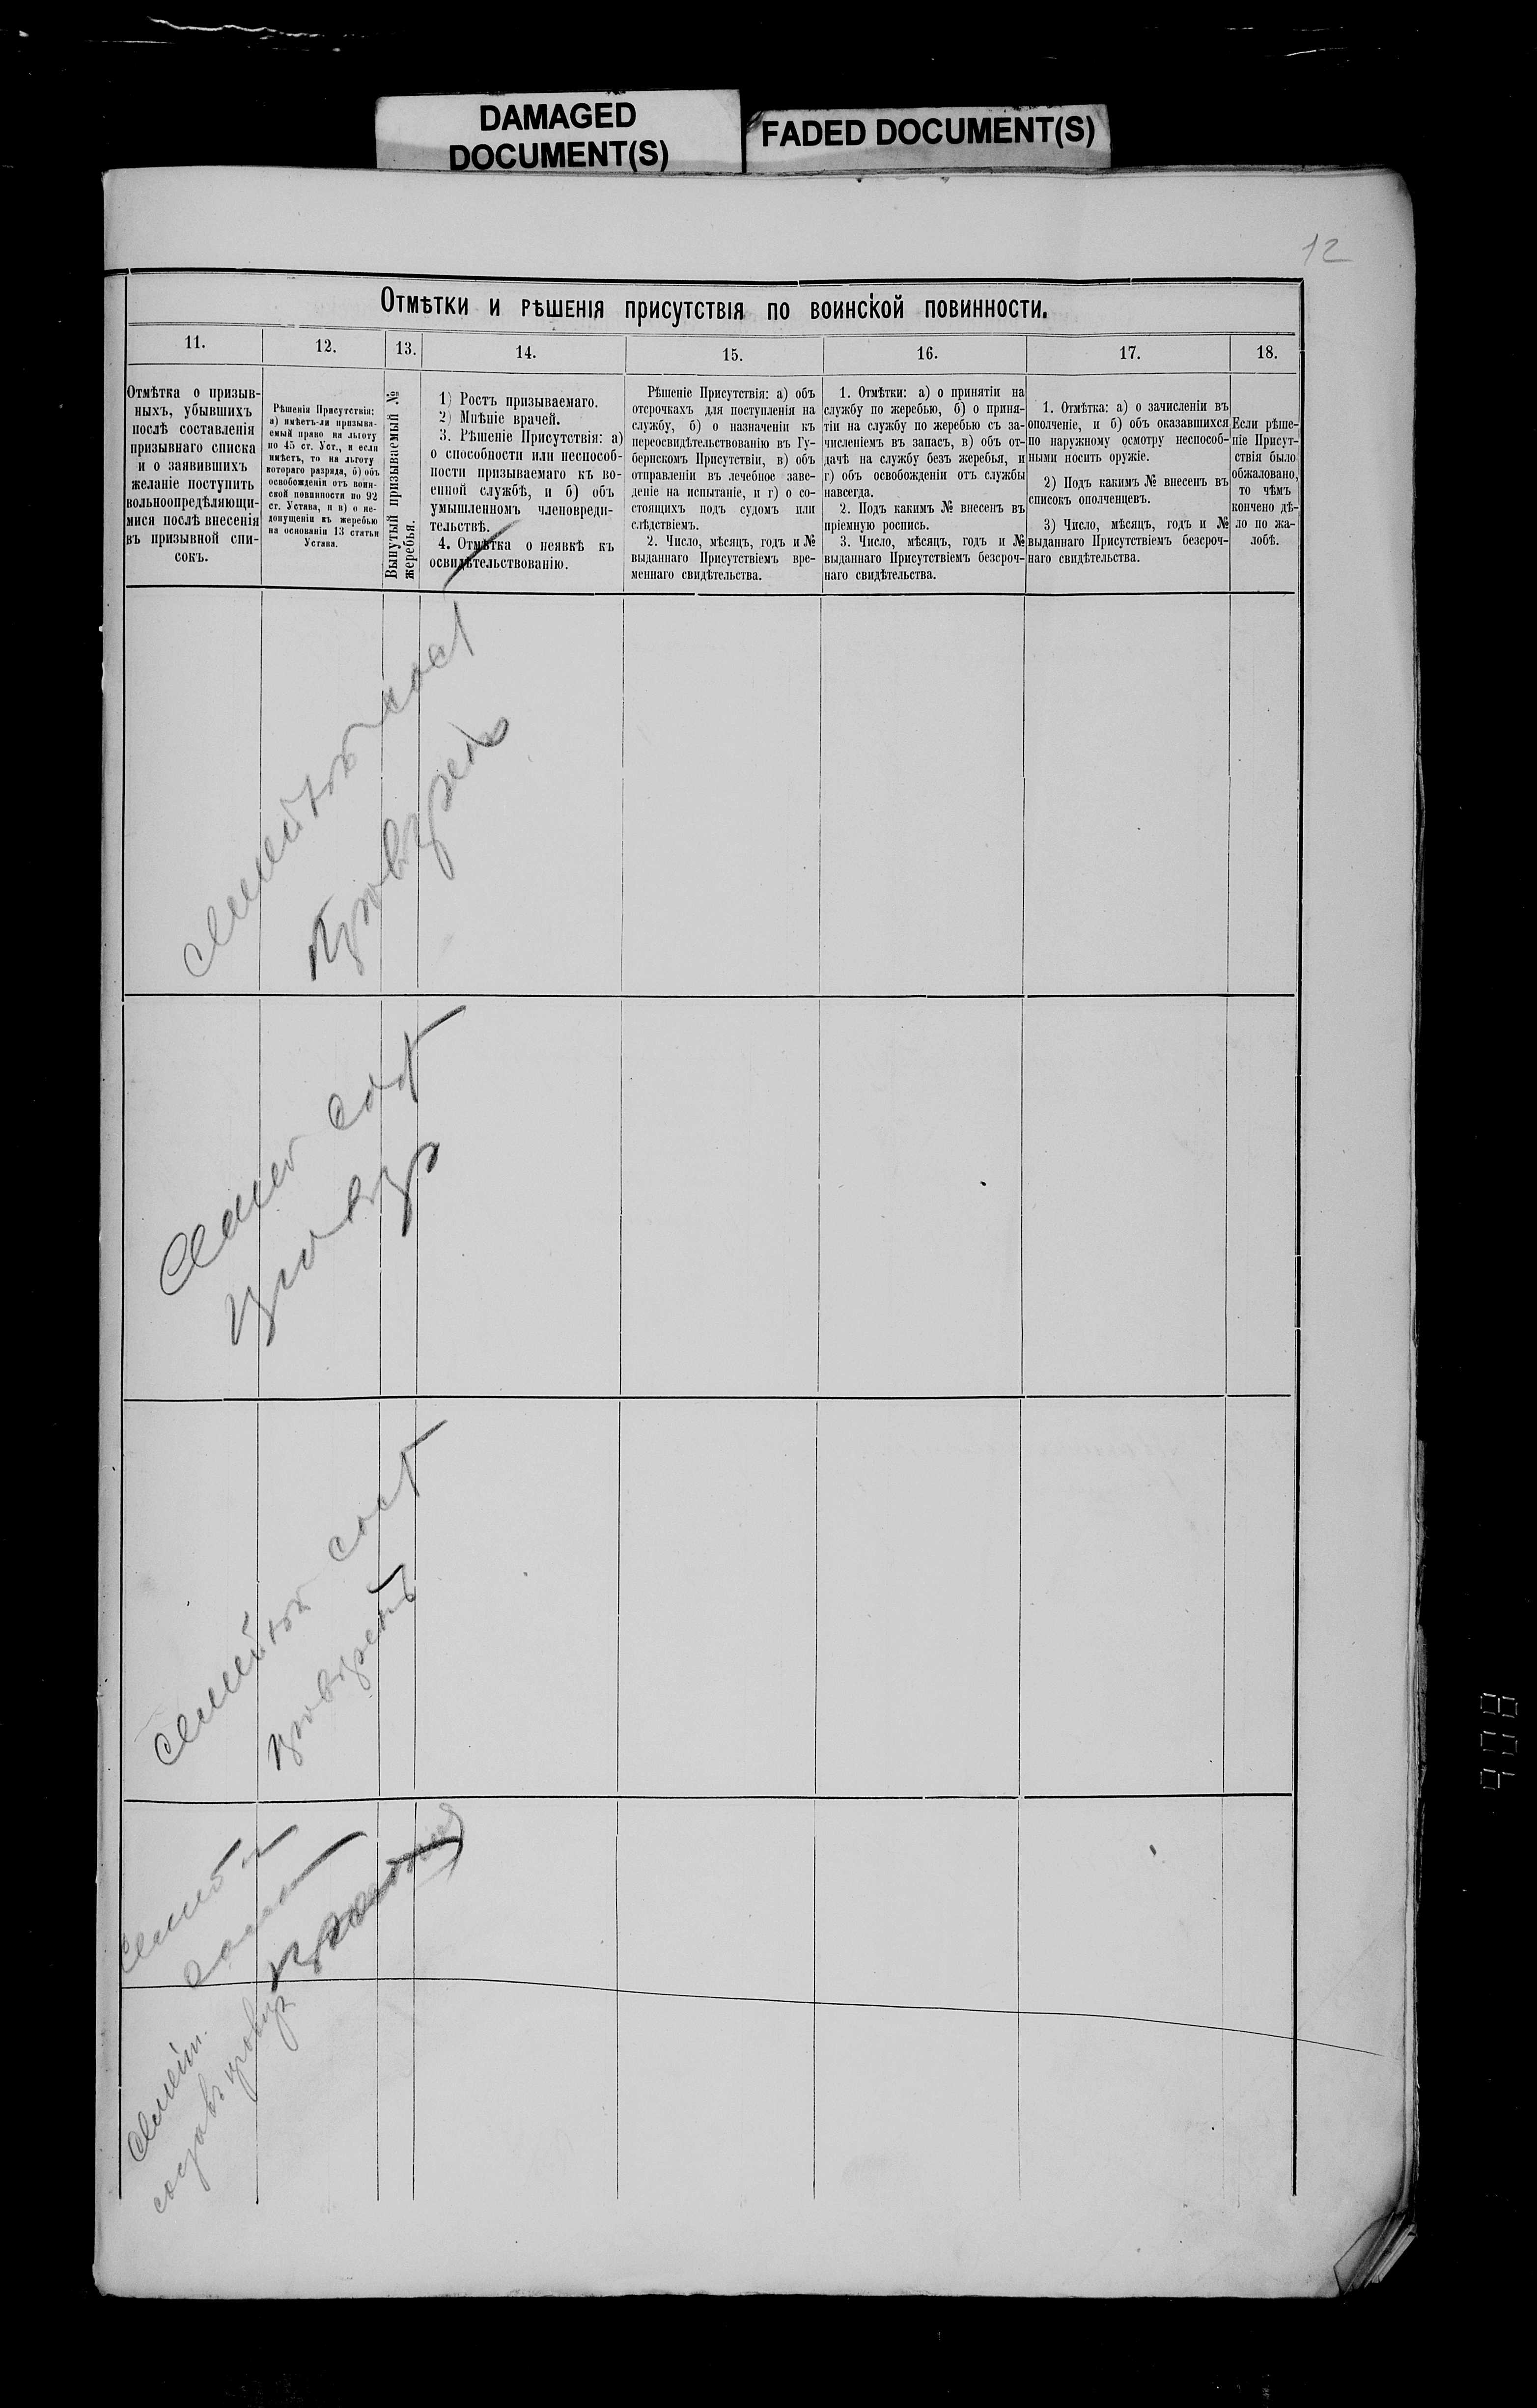 DAMAGED
DOCUMENT(S)
FADED DOCUMENT(S)
12
Отмѣтки и рѣшенія присутствія по воинской повинности.
11.
12.
13.
14.
15.
16.
17.
18.
Отмѣтка о призыв-
ныхъ, убывшихъ
послѣ составленія
призывнаго списка
и о заявившихъ
желаніе поступить
вольноопредѣляющи-
мися послѣ внесенія
въ призывной спи-
сокъ.
Рѣшенія Присутствія:
а) имѣетъ-ли призыва-
емый право на льготу
по 45 ст. Уст., и если
имѣетъ, то на льготу
котораго разряда, б) объ
освобожденіи отъ воин-
ской повинности по 92
ст. Устава, и в) о не-
допущеніи къ жеребью
на основаніи 13 статьи
Устава.
Вынутый призываемый №
жеребья.
1) Ростъ призываемаго.
2) Мнѣніе врачей.
3. Рѣшеніе Присутствія: а)
о способности или неспособ-
ности призываемаго къ во-
енной службѣ, и б) объ
умышленномъ членовреди-
тельствѣ.
4. Отмѣтка о неявкѣ къ
освидѣтельствованію.
Рѣшеніе Присутствія: а) объ
отсрочкахъ для поступленія на
службу, б) о назначеніи къ
переосвидѣтельствованію въ Гу-
бернскомъ Присутствіи, в) объ
отправленіи въ лечебное заве-
деніе на испытаніе, и г) о со-
стоящихъ подъ судомъ или
слѣдствіемъ.
2. Число, мѣсяцъ, годъ и №
выданнаго Присутствіемъ вре-
меннаго свидѣтельства.
1. Отмѣтки: а) о принятіи на
службу по жеребью, б) о приня-
тіи на службу по жеребью съ за-
численіемъ въ запасъ, в) объ от-
дачѣ на службу безъ жеребья, и
г) объ освобожденіи отъ службы
навсегда.
2. Подъ какимъ № внесенъ въ
пріемную роспись.
3. Число, мѣсяцъ, годъ и №
выданнаго Присутствіемъ безсроч-
наго свидѣтельства.
1. Отмѣтка: а) о зачисленіи въ
ополченіе, и б) объ оказавшихся
по наружному осмотру неспособ-
ными носить оружіе.
2) Подъ какимъ № внесенъ въ
списокъ ополченцевъ.
3) Число, мѣсяцъ, годъ и №
выданнаго Присутствіемъ безсроч-
наго свидѣтельства.
Если рѣше-
ніе Присут-
ствія было
обжаловано,
то чѣмъ
кончено дѣ-
ло по жа-
лобѣ.
сост
Семей сост
провѣр
сост
Семейн.
составъ провѣр
908